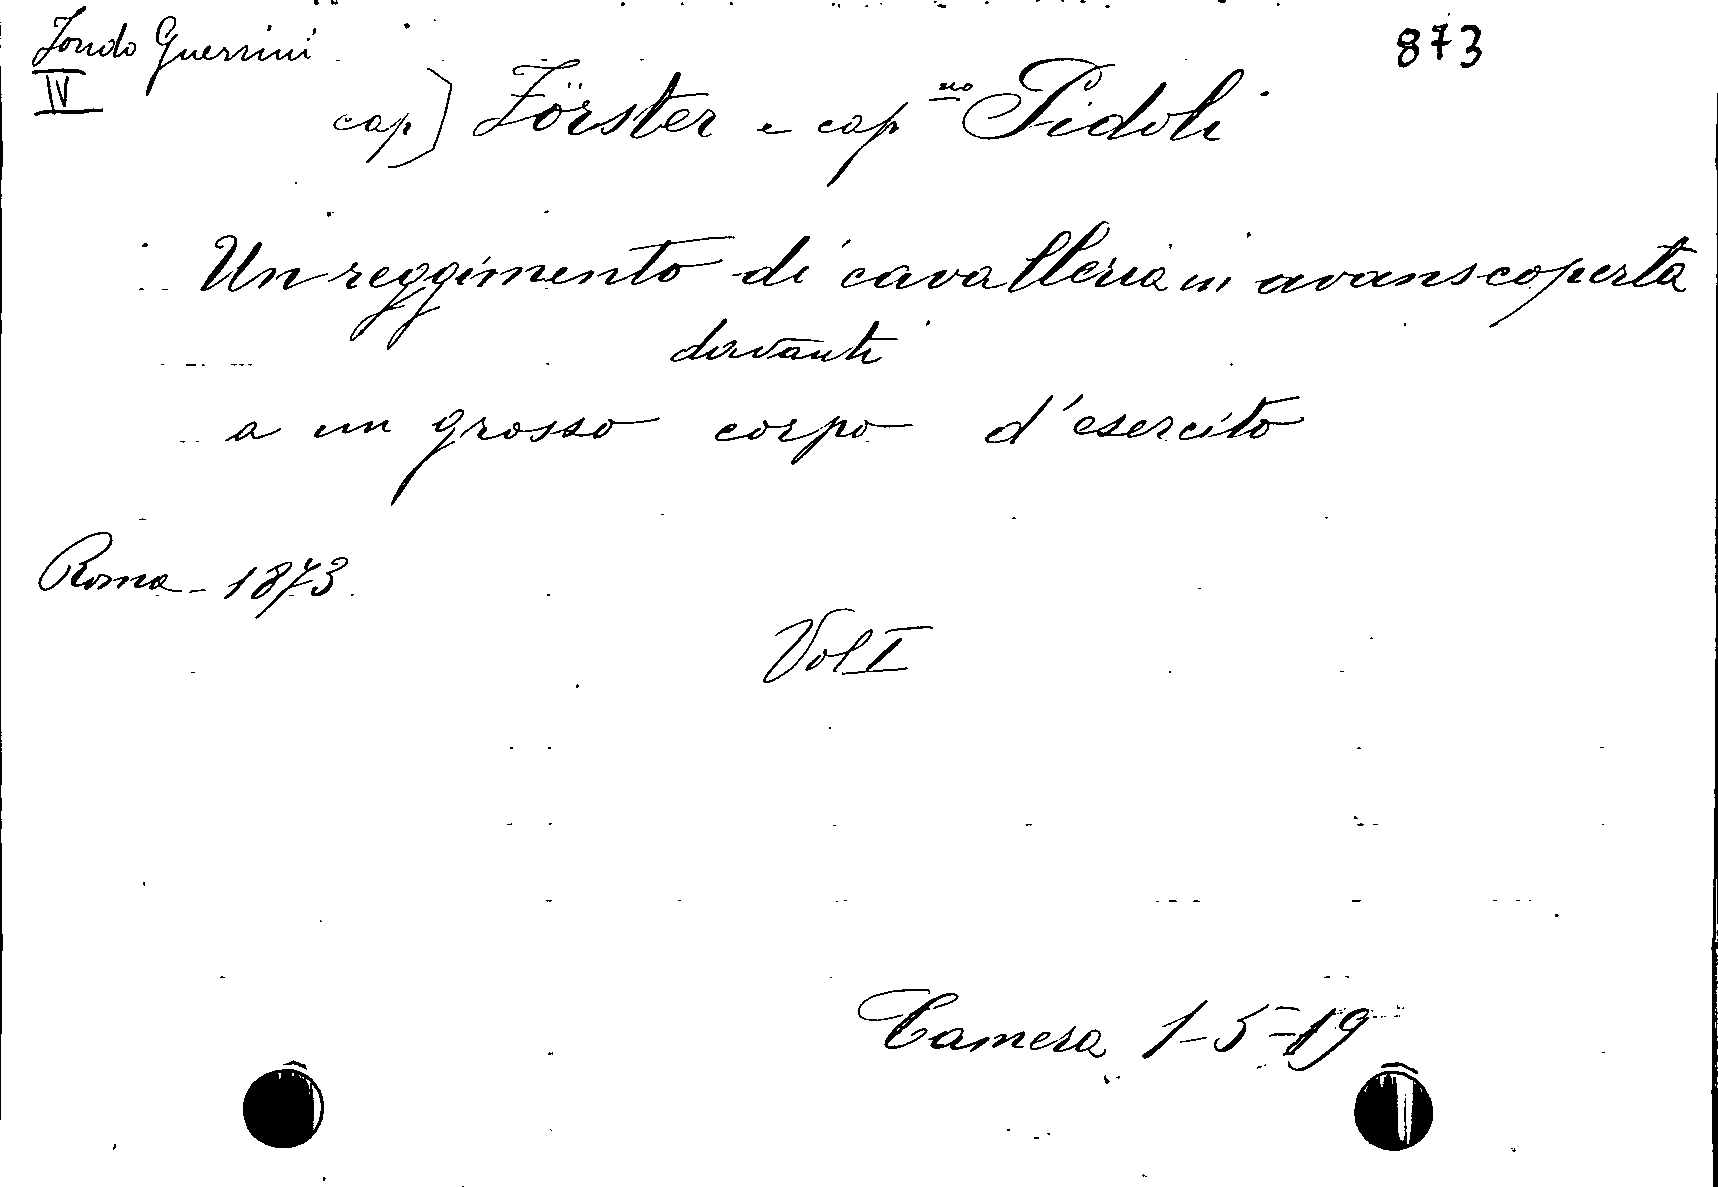 Fondo Guerrini 873
IV
cap) Förster e cap no Pidoli
Un reggimento di cavalleria in avanscoperta
davanti
a un grosso corpo d'esercito
Roma - 1873
Vol I
Camera 1-5-19